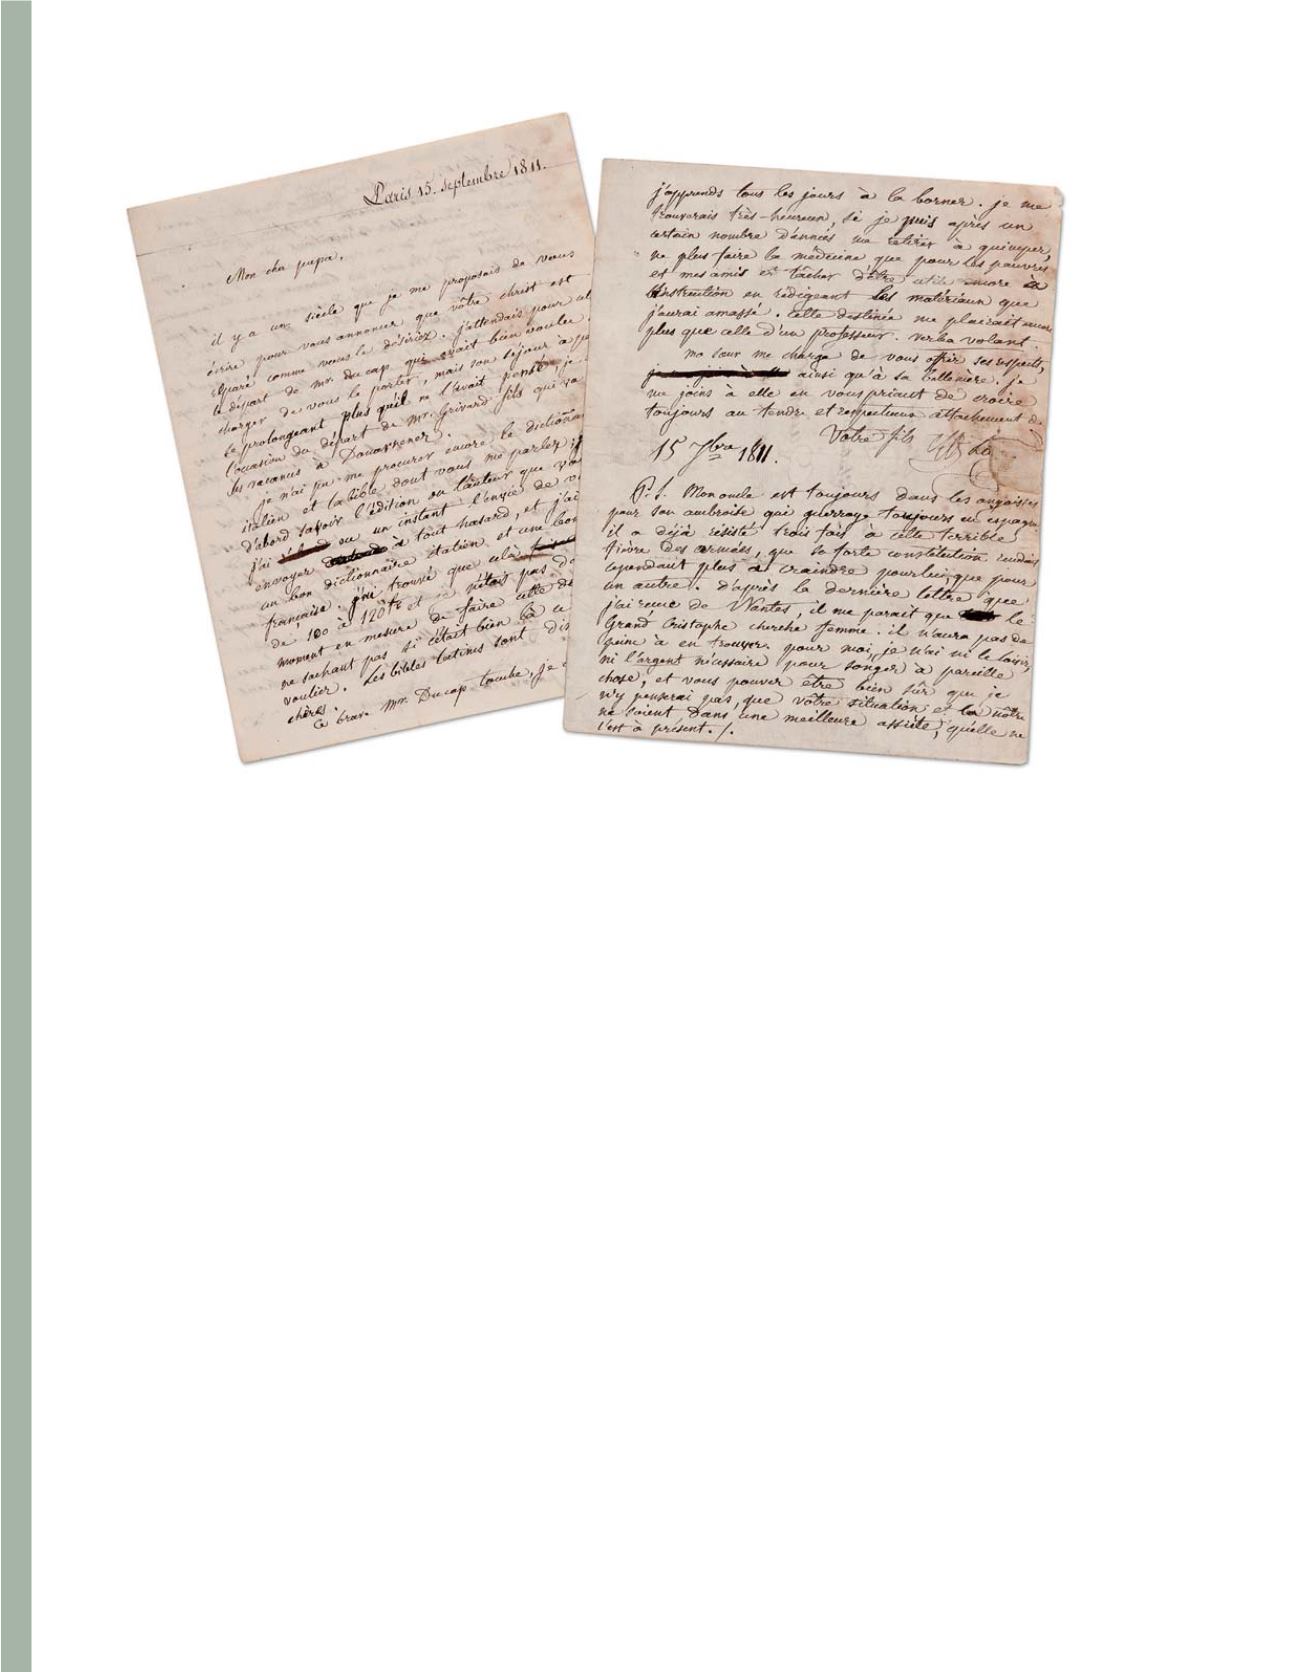 Paris 15. septembre 1811.
Mon cher papa,
il y a un siècle que je me proposais de vous
écrire, pour vous annoncer que vôtre christ est
réparé comme vous le désiriez. j'attendais pour cela
le départ de mr. du cap qui avait bien voulu se
charger de vous le porter, mais son séjour à
se prolongeant plus qu'il ne l'avait pensé, je
l'ocasion du départ de mr. Grivard fils qui va
ses vacances à Douarnenez.
je n'ai pu me procurer encore le dictionnaire
italien et la bible dont vous me parlez,
d'abord savoir l'édition ou l'auteur que
j'ai eu un instant l'envie de
envoyer à tout hasard, et j'ai
un bon dictionnaire italien et une bonne
française. j'ai trouvé que cela
de 100 à 120 fr et je n'étais pas
moment en mesure de faire cette
ne sachant pas si c'était bien là ce
vouliez. Les bibles latines sont
chères.
Ce brave Mr. Du cap tombe, je
j'apprends tous les jours à la borner. je me
trouverais très-heureux, si je puis après un
certain nombre d'années me retirer à quimper,
ne plus faire la médecine que pour les pauvres
et mes amis et tacher d'être utile encore à
l'instruction en rédigeant les matériaux que
j'aurai amassé. cette destinée me plairait encore
plus que celle d'un professeur. verba volant.
ma sœur me charge de vous offrir ses respects,
ainsi qu'à sa bellemère. je
me joins à elle en vous priant de croire
toujours au tendre et respectueux attachement de
Votre fils
15 7bre 1811.
P.S. Mon oncle est toujours dans les angoisses
pour son ambroise qui guerroye toujours en espagne
il a déjà résisté trois fois à cette terrible
fièvre des armées, que sa forte constitution rendait
cependant plus à craindre pour lui, que pour
un autre. d'après la dernière lettre que
j'ai reçue de Nantes, il me parait que le
Grand Cristophe cherche femme. il n'aura pas de
peine à en trouver. pour moi, je n'ai ni le loisir,
ni l'argent nécessaire pour songer à pareille
chose, et vous pouver être bien sûr que je
n'y penserai pas, que vôtre situation et la nôtre
ne soient dans une meilleure assiete, qu'elle ne
l'est à présent. /.